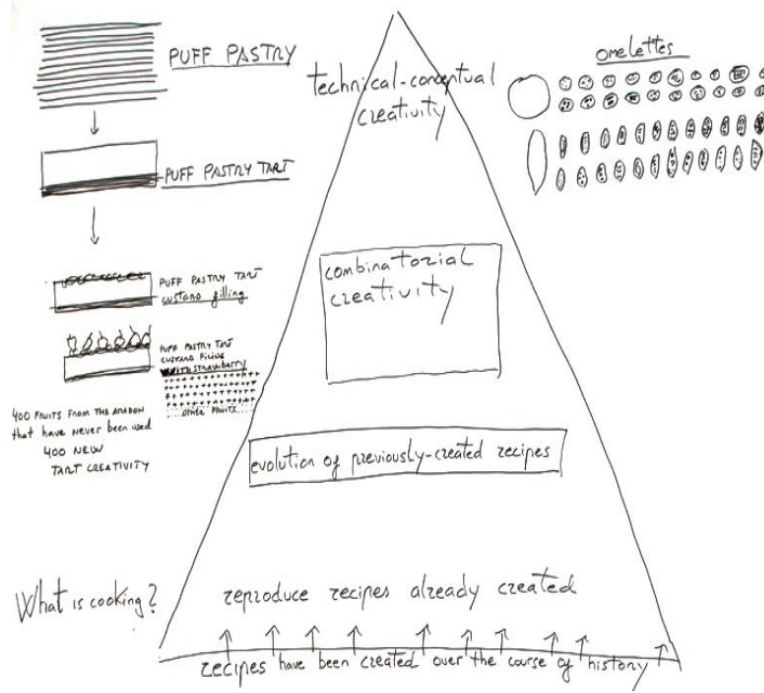 PUFF PASTRY
PUFF PASTRY TART
PUFF PASTRY TART
custard filling
PUFF PASTRY TART
CUSTARD FILLING
WITH STRAWBERRY
OTHER FRUITS
400 FRUITS FROM THE AMAZON
that have never been used
400 NEW
TART CREATIVITY
What is cooking?
technical-conceptual
creativity
combinatorial
creativity
evolution of previously-created recipes
reproduce recipes already created
recipes have been created over the course of history
omelettes